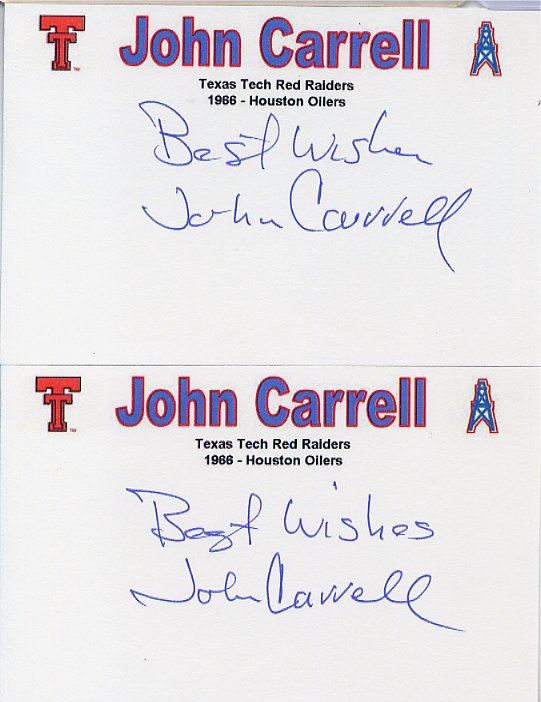 John Carrell
Texas Tech Red Raiders
1966 - Houston Oilers
Best Wishes
John Carrell
John Carrell
Texas Tech Red Raiders
1966 - Houston Oilers
Best Wishes
John Carrell